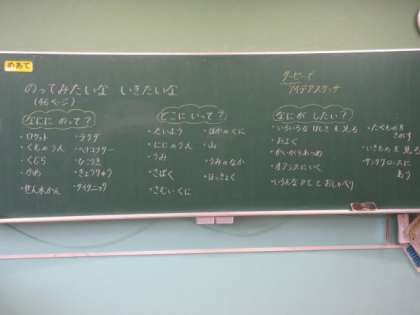 めあて
のってみたいな いきたいな
(46ページ)
グーピーで
アイデアスケッチ
なにに のって?
・ロケット
・くものうえ
・くじら
・かめ
・せんすいかん
・ラクダ
・ヘリコプター
・ひこうき
・きょうりゅう
・タイタニック
どこに いって?
・たいよう
・にじのうえ
・うみ
・さばく
・さむいくに
・ほかのくに
・山
・うみのなか
・ほっきょく
なにが したい?
・いろいろな けしきを見る
・およぐ
・かいがらあつめ
・オアシスにいく
・いろんな人としおしゃべり
・たべものを
・いきものを見る
・サンタクロースに
あう